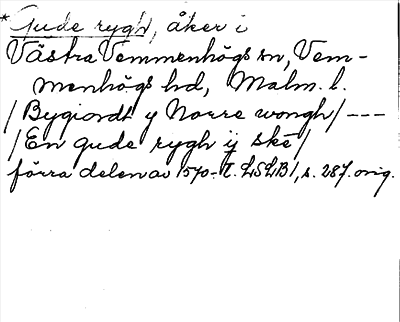 *Gude rygh, åker i
Västra Vemmenhögs sn, Vem-
menhögs hd, Malm. l.
/Bygiordt y Norre wongh/ ---
/En gude rygh ij ske/
förra delen av 1570-t. LSLB1, s. 287. orig.